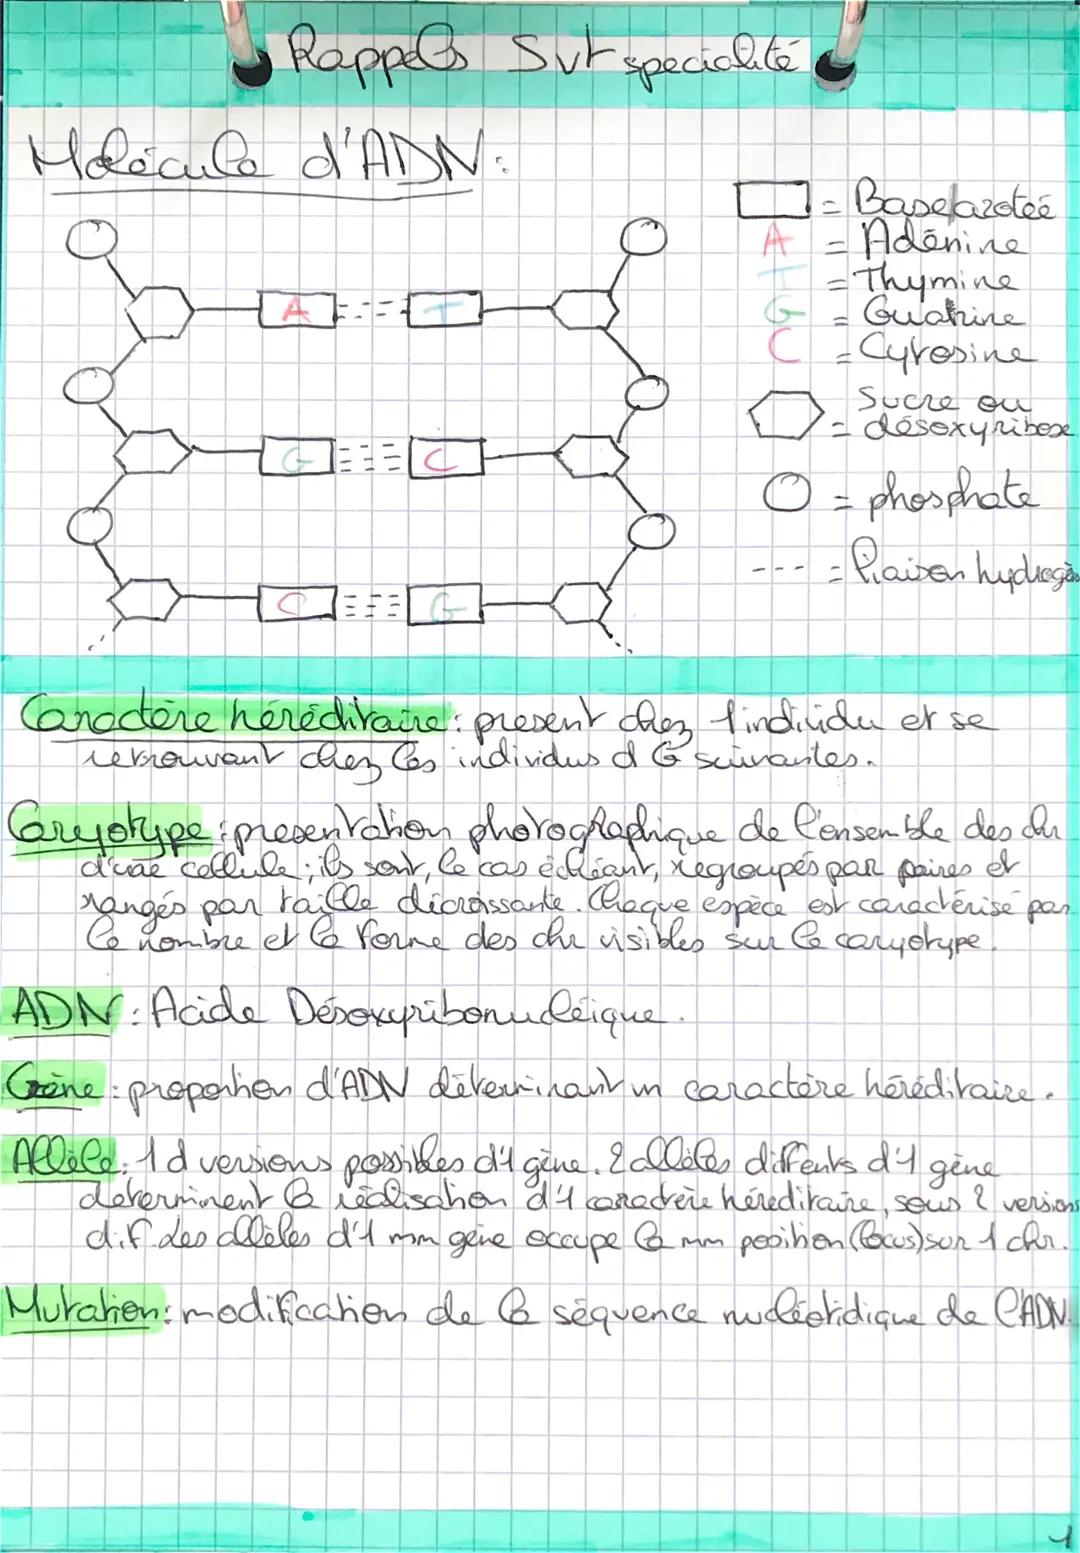 Rappels Svt spécialité
Molécule d'ADN :
= Base azoteé
A = Adénine
T = Thymine
G = Guanine
C = Cytosine
Sucre ou
= désoxyribose
= phosphate
--- = liaison hydrogèn
A T
G C
C G
Caractère héréditaire : present chez l'individu et se
retrouvant chez les individus d G suivantes.
Caryotype : presentation photographique de l'ensemble des chr
d'une cellule ; ils sont, le cas échéant, regroupés par paires et
rangés par taille décroissante. Chaque espèce est caractérisé par
le nombre et la forme des chr visibles sur le caryotype.
ADN : Acide Désoxyribonucléique.
Gène : proportion d'ADN déterminant un caractère héréditaire.
Allèle : 1 d versions possibles d'1 gène. 2 allèles différents d'1 gène
determinent la réalisation d'1 caractère héreditaire, sous 2 versions
dif. Les allèles d'1 mm gène occupe la mm position (locus) sur 1 chr.
Mutation : modification de la séquence nucléotidique de l'ADN.
1